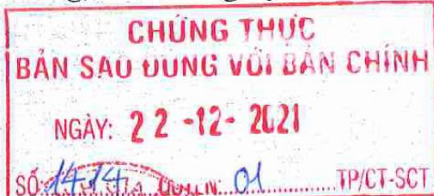 CHỨNG THỰC
BẢN SAO ĐÚNG VỚI BẢN CHÍNH
NGÀY: 22-12-2021
SỐ: 1414 QUYỂN: 01 TP/CT-SCT